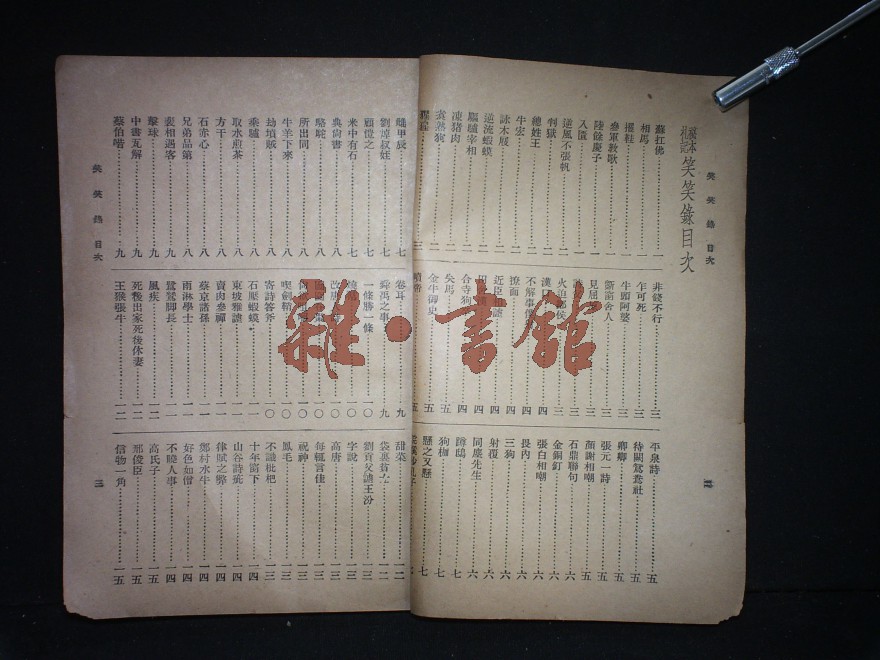 笑笑錄目次
笑笑錄 目次
蘇扛佛 一
相馬 一
擢鞋 一
參軍敦歌 一
陸餘慶子 一
入閣 一
逆風不張帆 二
判獄 二
總姓王 二
牛宏 二
詠木屐 二
逆流蝦蟆 二
驅驢宰相 二
凍豬肉 二
袁熟狗 二
非錢不行 三
乍可死 三
牛頭阿婆 三
斷窗舍人 三
見屈
火迫 侯 三
漢口 四
不解事僕 四
撩面 四
近臣相謔 四
合寺狗 四
失馬 五
金牛御史 五
平泉詩 五
待闕鴛鴦社 五
卿卿 五
張元一詩 五
顏謝相嘲 五
石鼎聯句 六
金銅釘 六
張白相嘲 六
畏內 六
三狗 六
射覆 六
同塵先生 六
譚鴟 七
狗枷 七
懸之又懸 七
魏甲辰 七
劉焯叔姪 七
顧愷之 七
米中有石 七
典尚書 八
駱駝 八
所出同 八
牛羊下來 八
劫墳賊 八
乘驢 八
取水煎茶 八
石赤心 八
方干 八
兄弟品第 八
裴相遇客 九
擊球 九
中書瓦解 九
蔡伯喈 九
卷耳 九
舜禹之事 九
一條勝一條 一〇
改唐
喫劍鞘 一〇
寄詩答斧 一〇
石壓蝦蟆 一一
東坡雅謔 一一
賣肉參禪 一一
蔡京諸孫 一一
雨淋學士 一一
鴛鴦脚長 一一
風疾 一二
死後出家死後休妻 一二
王猴張牛 一二
甜菜 一二
袋裏貧士 一二
劉貢父謔王汾 一三
字說 一三
高唐 一三
每輒言佳 一三
祝神 一三
鳳毛 一三
不識枇杷 一三
十年窗下 一四
山谷詩疵 一四
律賦之弊 一四
鄭村水牛 一四
好色如僧 一四
不曉人事 一四
高氏子 一五
邢俊臣 一五
信物一角 一五
笑笑錄 目次
三